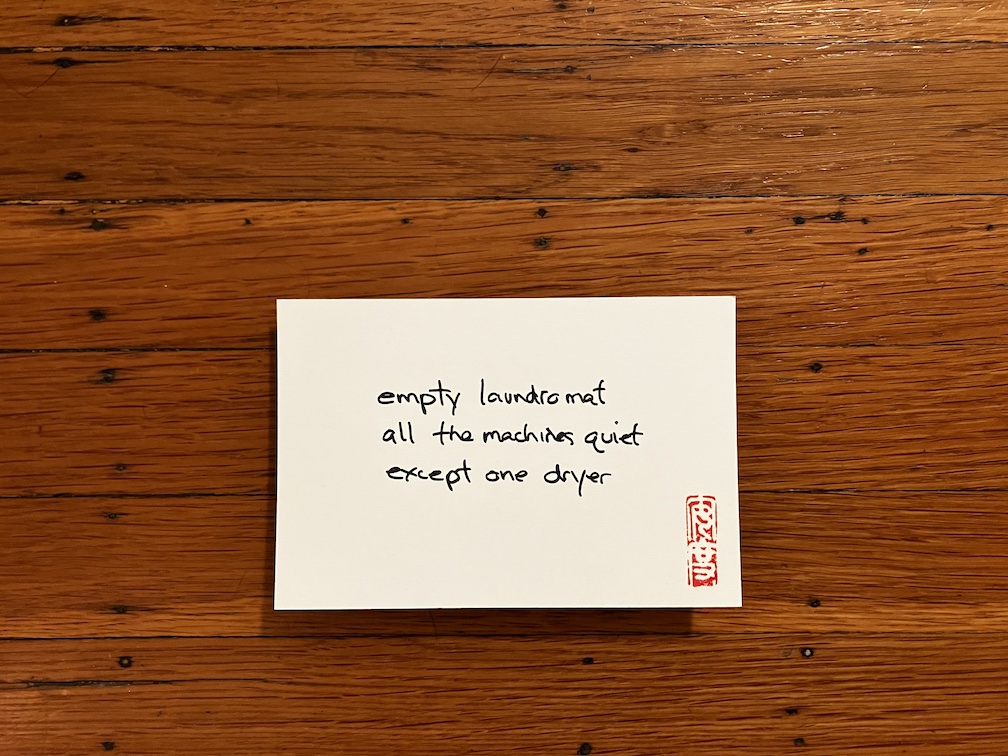 empty laundromat
all the machines quiet
except one dryer